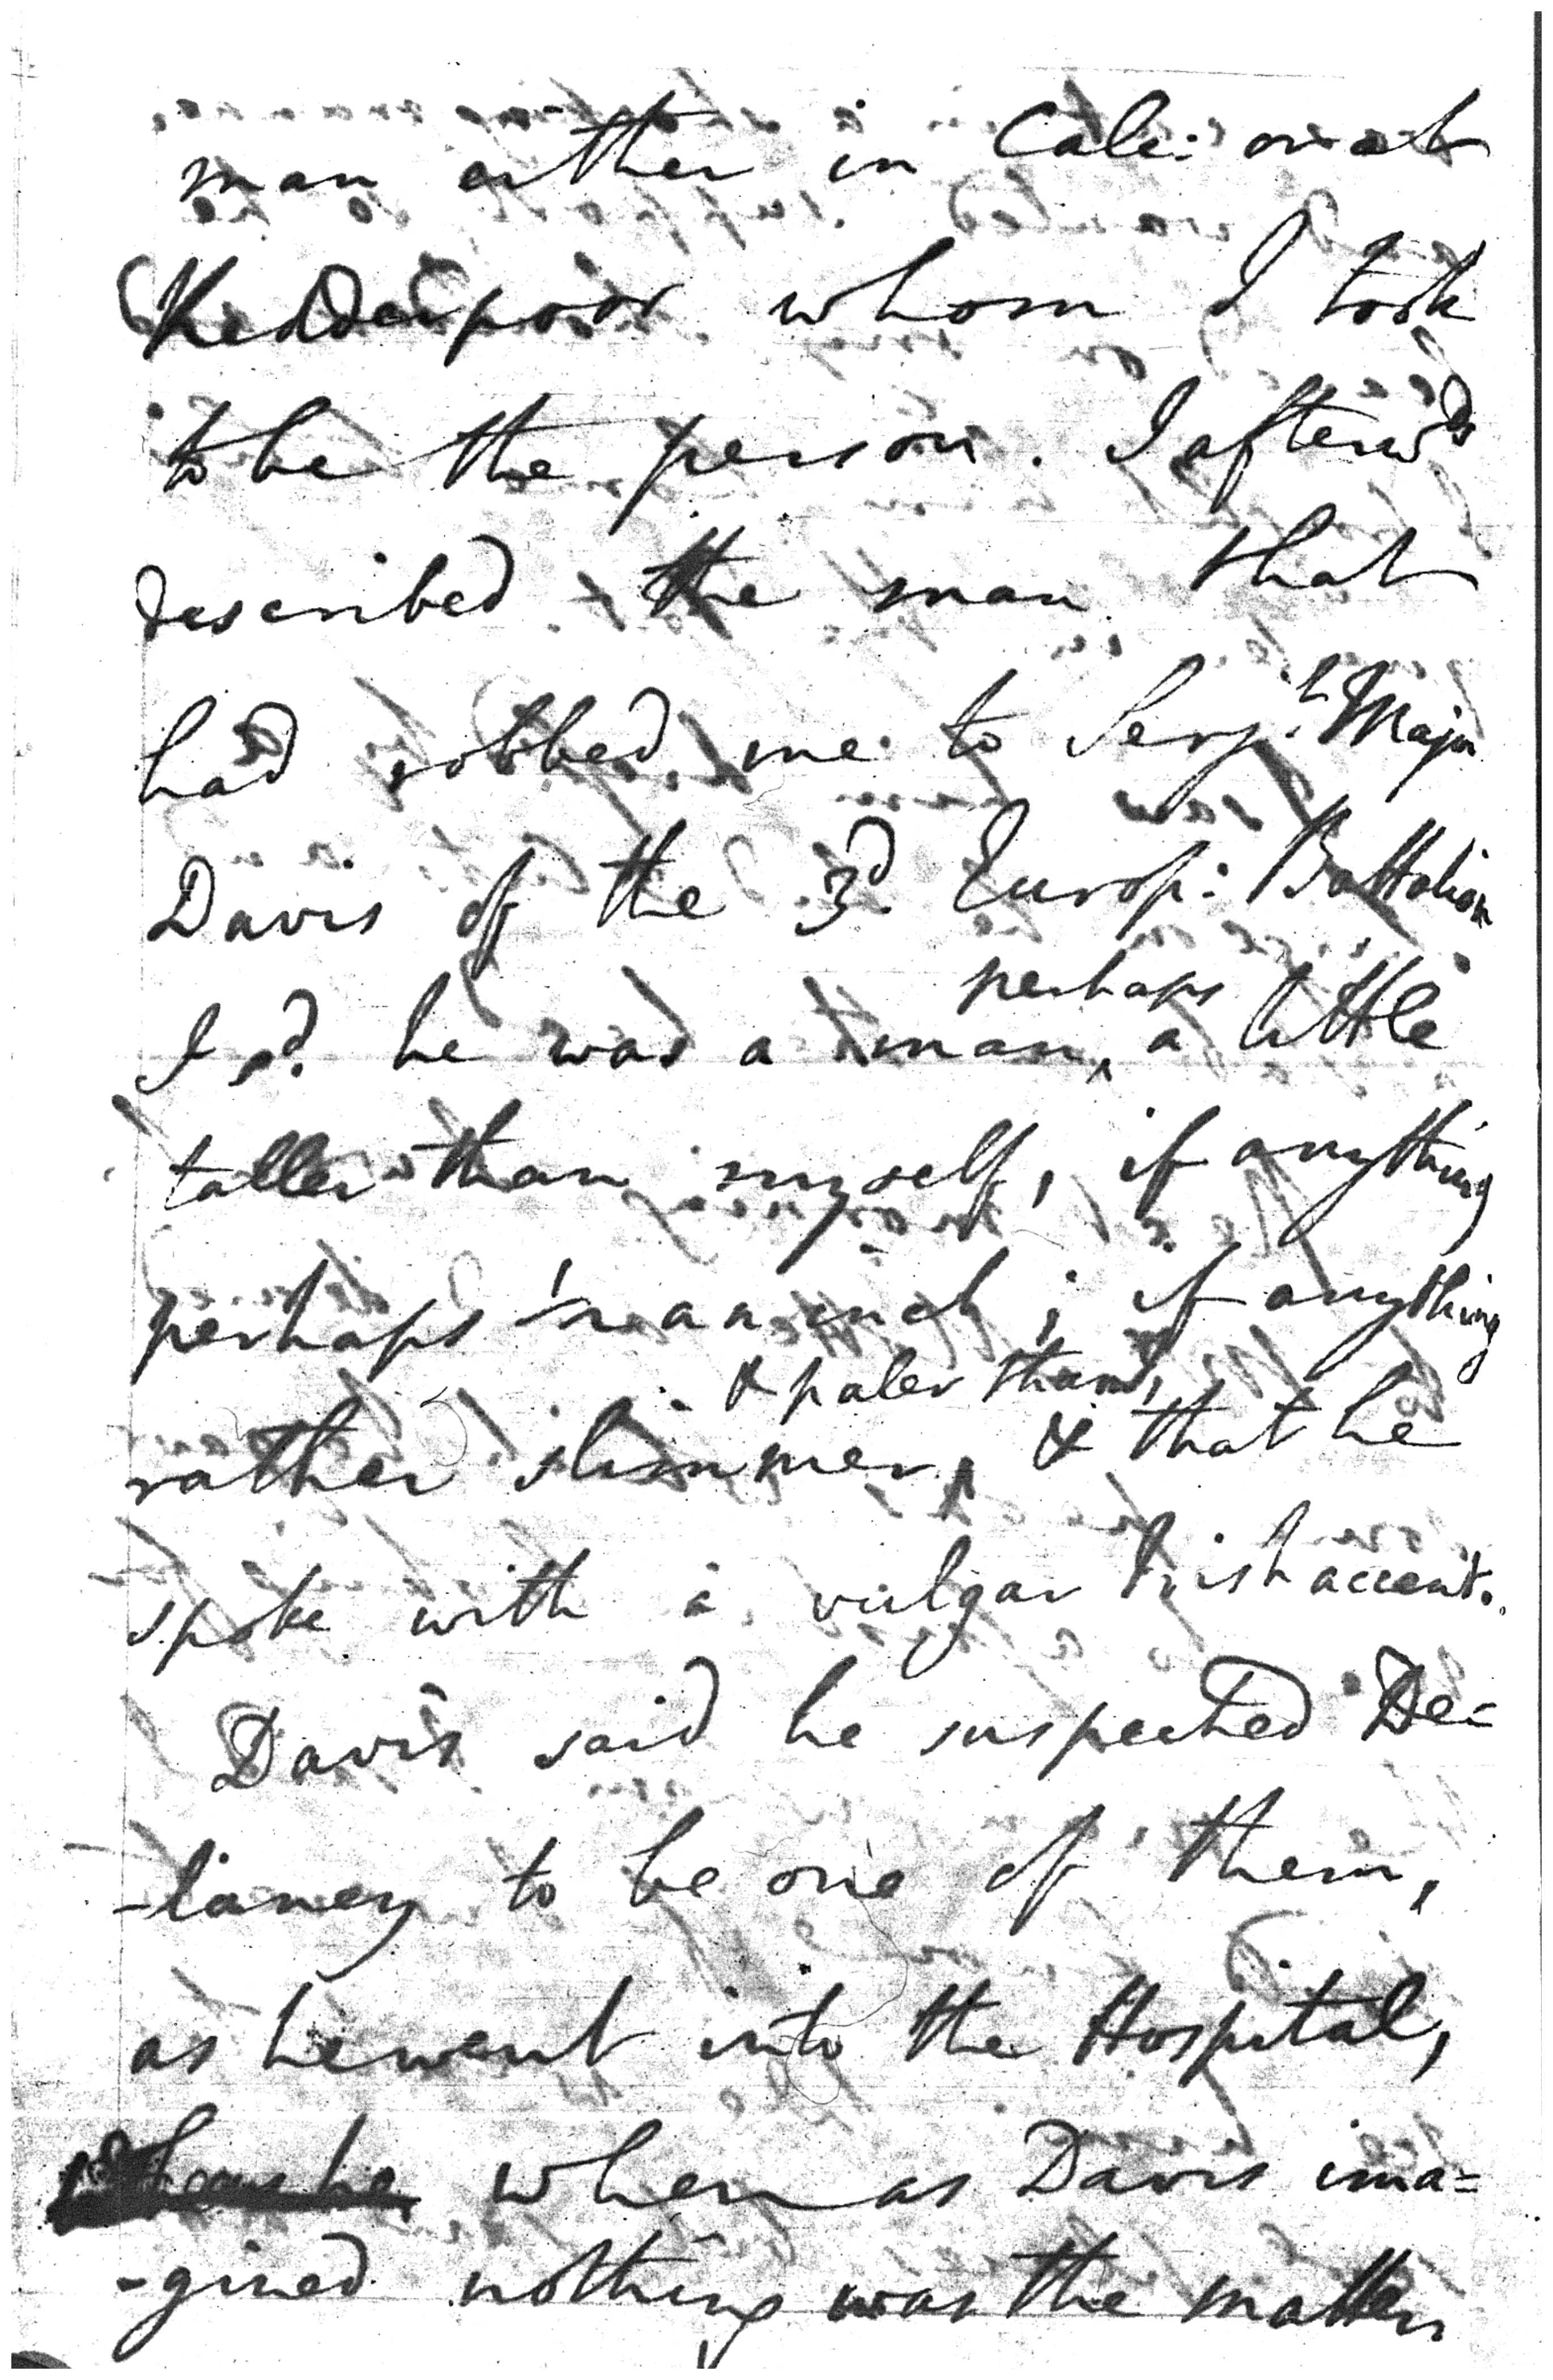 man either in Calc: or at
Kedderpoor whom I took
to be the person. I afterwds
described the man that
had robbed me to Serjt. Major
Davis of the 3d. Europ: Battalion
perhaps
I sd. he was a man, a little
taller than myself, if anything
perhaps ½ an inch; if anything
& paler than I,
rather slimmer, & that he
spoke with a vulgar Irish accent.
Davis said he suspected De=
-laney to be one of them,
as he went into the Hospital,
when as Davis ima=
-gined nothing was the matter